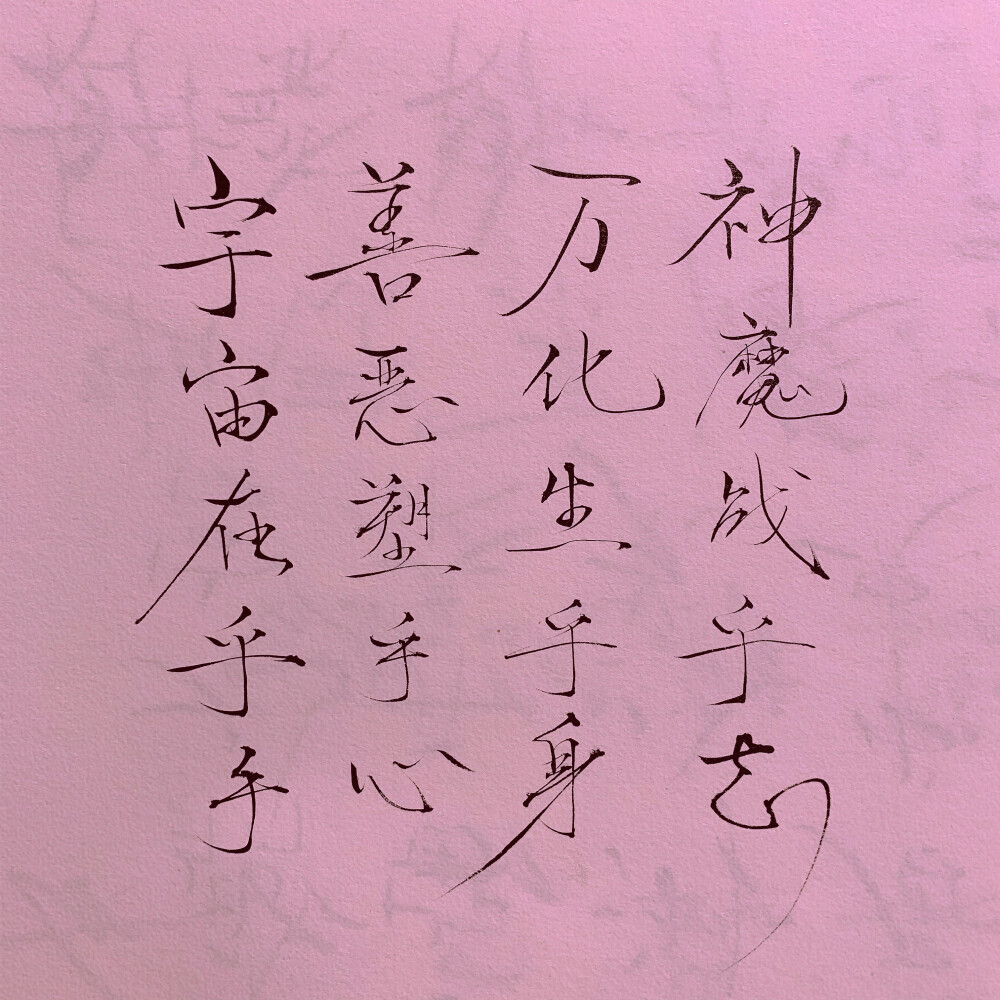 神魔战乎
万化生乎身
善恶塑乎心
宇宙在乎手